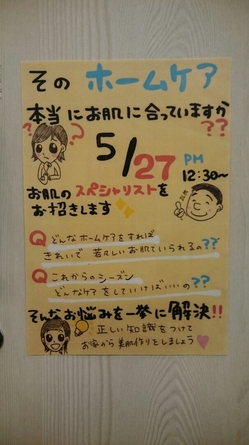 その ホームケア
本当にお肌に合っていますか
??
5/27 PM
12:30〜
お肌のスペシャリストを
お招きします
Q どんなホームケアをすれば
きれいで 若々しいお肌でいられるの??
Q これからのシーズン
どんなケアをしていけばいいの??
そんなお悩みを一挙に解決!!
正しい知識をつけて
お家から美肌作りをしましょう